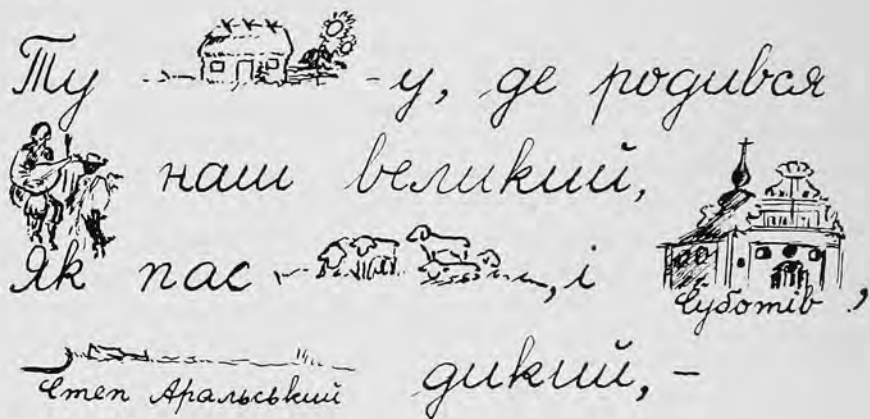 Ту -у, де родився
наш великий,
Як пас , і Суботів ,
Степ Аральський дикий, -